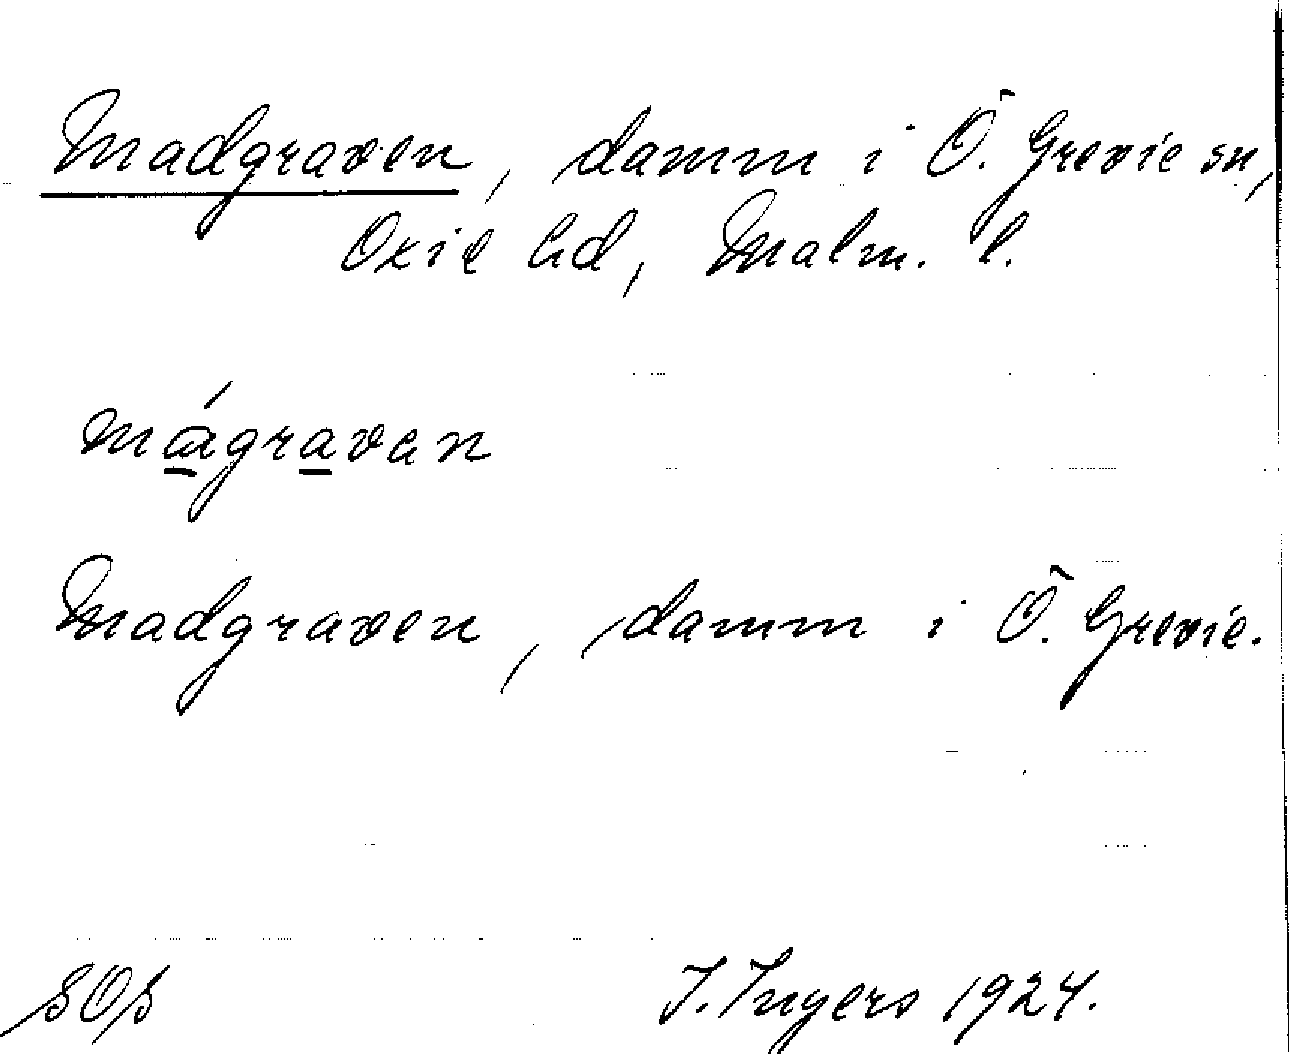 Madgraven, damm i Ö. Grevie sn,
Oxie hd, Malm. l.
mágravan
Madgraven, damm i Ö. Grevie.
SOS
I. Ingers 1924.